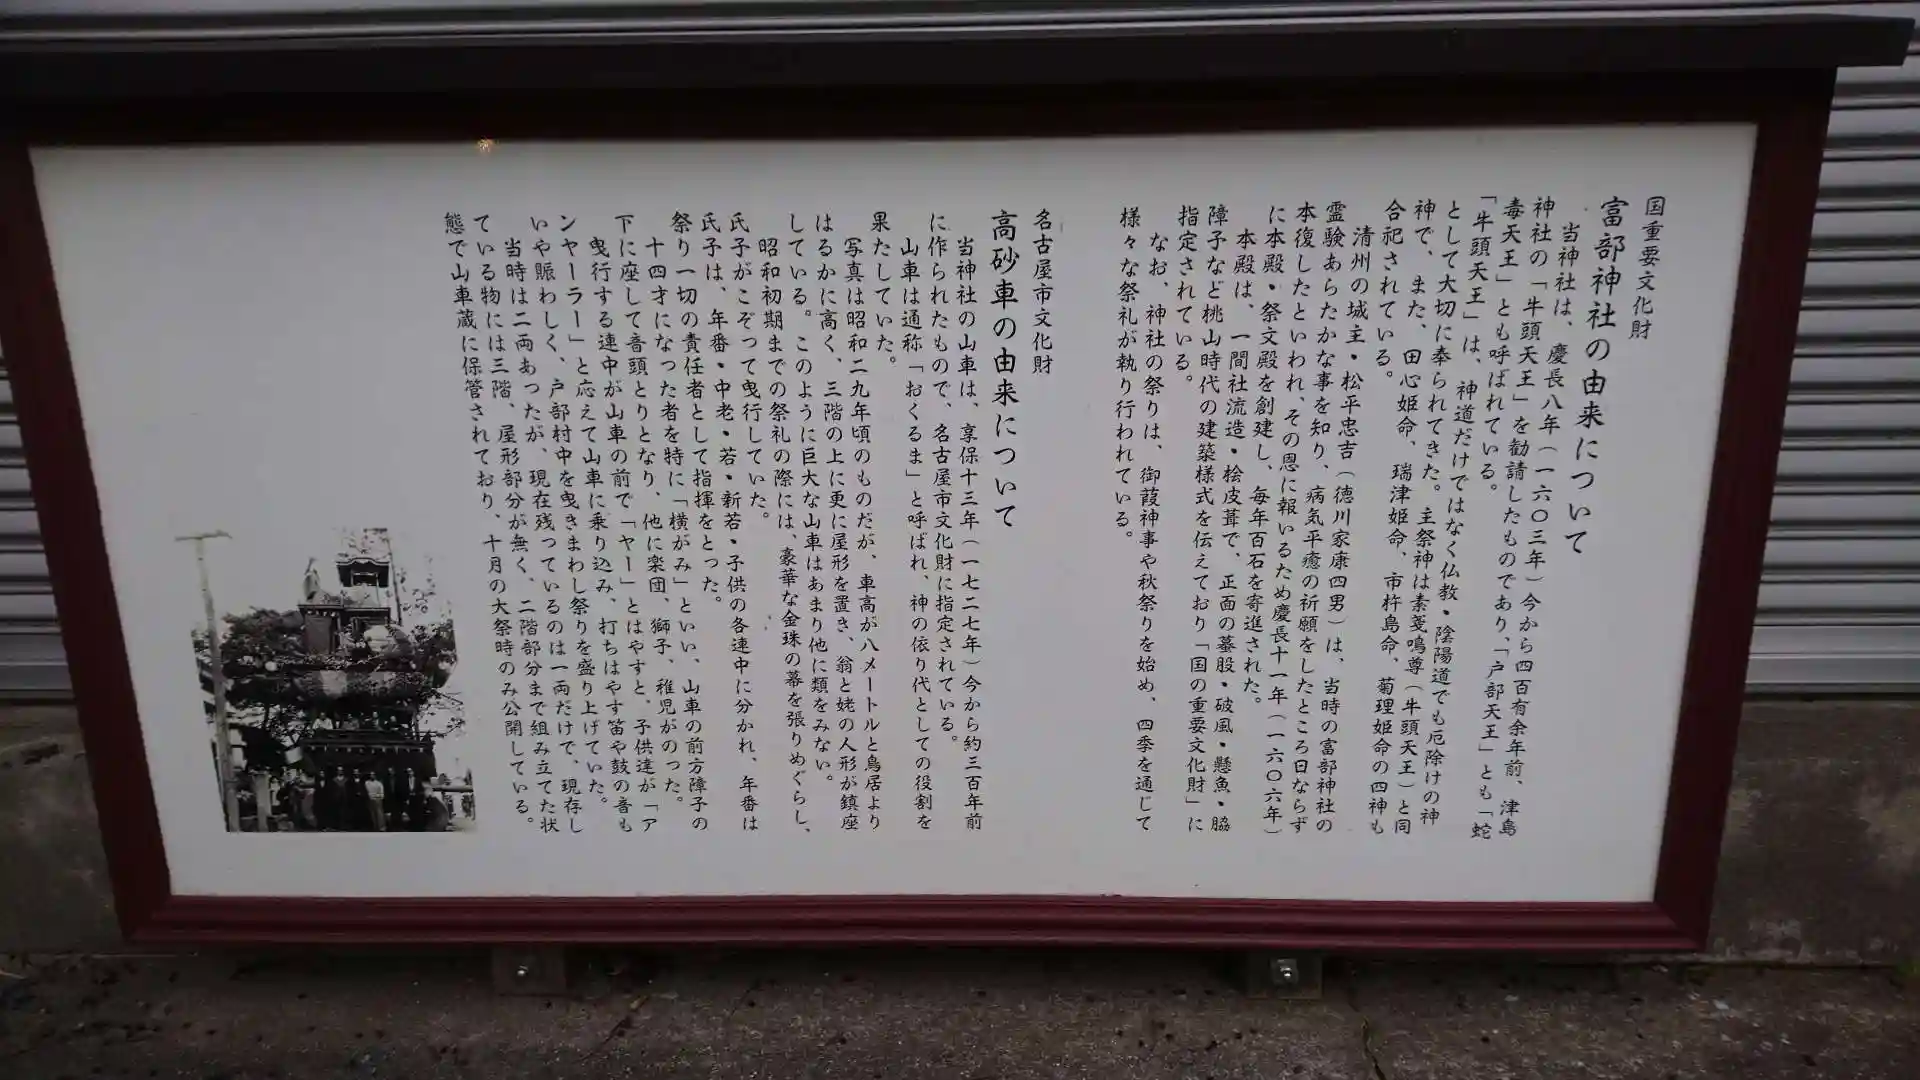 国重要文化財
富部神社の由来について
当神社は、慶長八年（一六〇三年）今から四百有余年前、津島
神社の「牛頭天王」を勧請したものであり、「戸部天王」とも「蛇
毒天王」とも呼ばれている。
「牛頭天王」は、神道だけではなく仏教・陰陽道でも厄除けの神
として大切に奉られてきた。主祭神は素戔嗚尊（牛頭天王）と同
神で、また、田心姫命、瑞津姫命、市杵島命、菊理姫命の四神も
合祀されている。
清州の城主・松平忠吉（徳川家康四男）は、当時の富部神社の
霊験あらたかな事を知り、病気平癒の祈願をしたところ日ならず
本復したといわれ、その恩に報いるため慶長十一年（一六〇六年）
に本殿・祭文殿を創建し、毎年百石を寄進された。
本殿は、一間社流造・桧皮葺で、正面の蟇股・破風・懸魚・脇
障子など桃山時代の建築様式を伝えており「国の重要文化財」に
指定されている。
なお、神社の祭りは、御葭神事や秋祭りを始め、四季を通じて
様々な祭礼が執り行われている。
名古屋市文化財
高砂車の由来について
当神社の山車は、享保十三年（一七二七年）今から約三百年前
に作られたもので、名古屋市文化財に指定されている。
山車は通称「おくるま」と呼ばれ、神の依り代としての役割を
果たしていた。
写真は昭和二九年頃のものだが、車高が八メートルと鳥居より
はるかに高く、三階の上に更に屋形を置き、翁と姥の人形が鎮座
している。このように巨大な山車はあまり他に類をみない。
昭和初期までの祭礼の際には、豪華な金珠の幕を張りめぐらし、
氏子がこぞって曳行していた。
氏子は、年番・中老・若・新若・子供の各連中に分かれ、年番は
祭り一切の責任者として指揮をとった。
十四才になった者を特に「横がみ」といい、山車の前方障子の
下に座して音頭とりとなり、他に楽団、獅子、稚児がのった。
曳行する連中が山車の前で「ヤー」とはやすと、子供達が「ア
ンヤーラー」と応えて山車に乗り込み、打ちはやす笛や鼓の音も
いや賑わしく、戸部村中を曳きまわし祭りを盛り上げていた。
当時は二両あったが、現在残っているのは一両だけで、現存し
ている物には三階、屋形部分が無く、二階部分まで組み立てた状
態で山車蔵に保管されており、十月の大祭時のみ公開している。